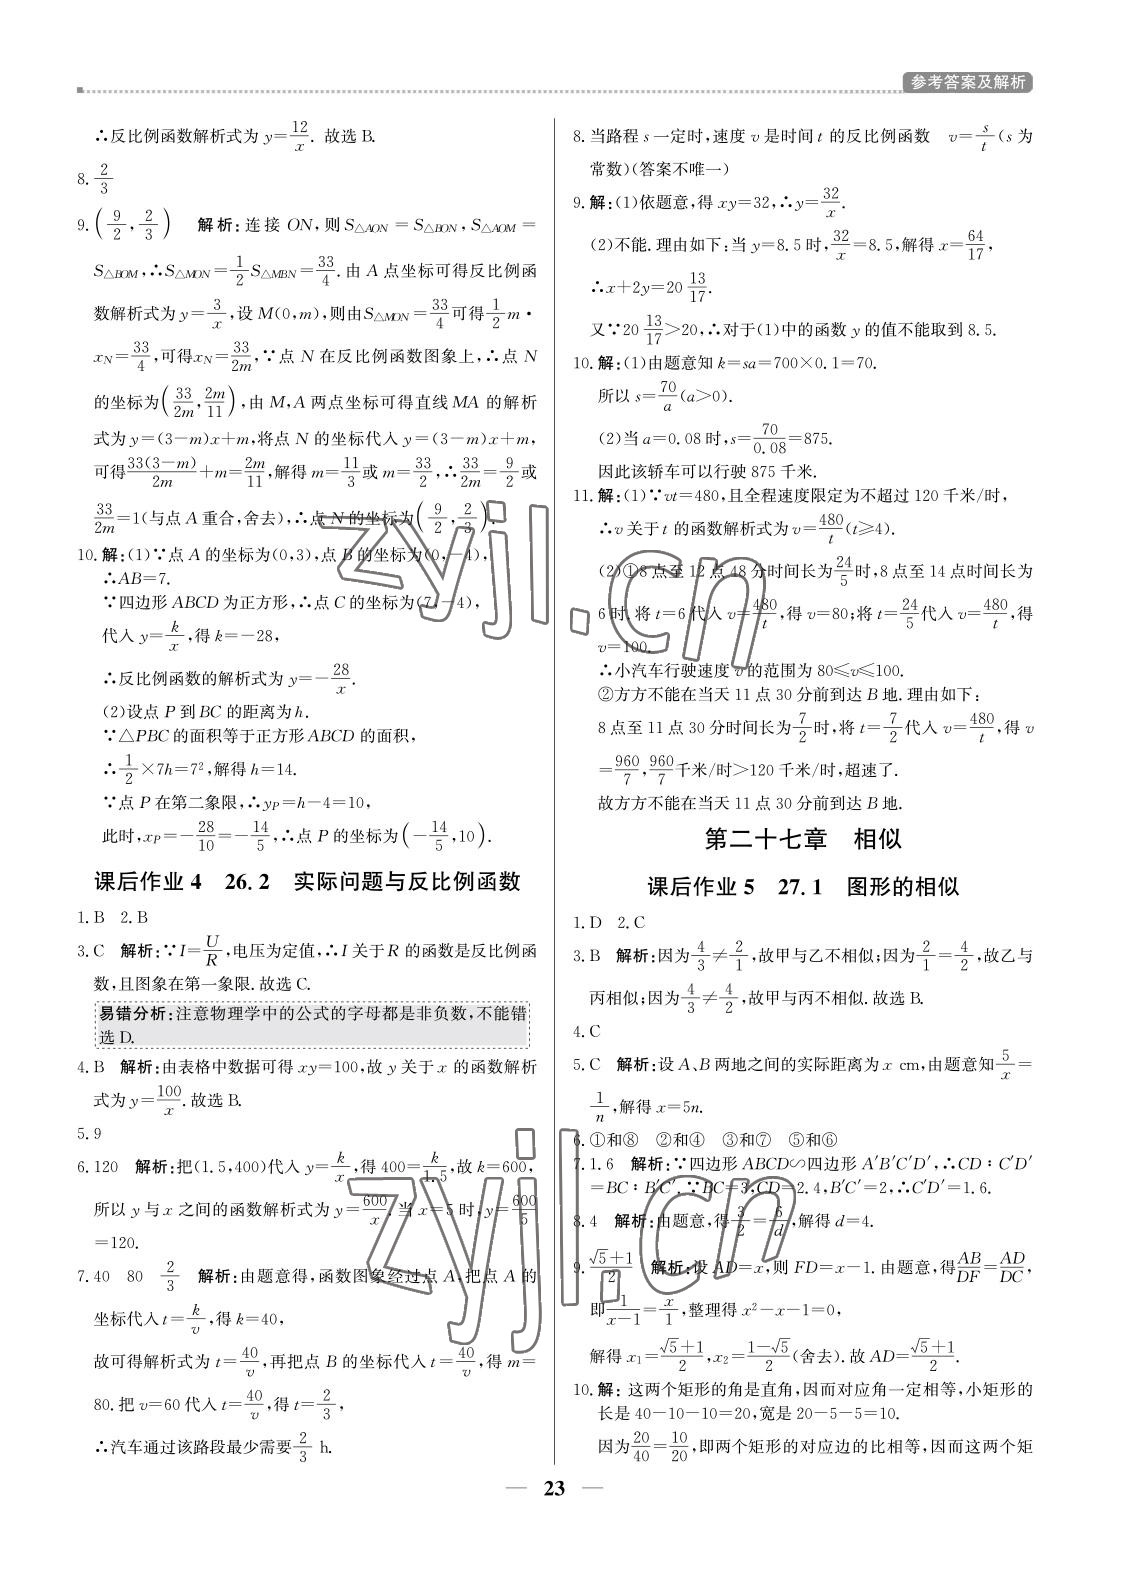 参考答案及解析
∴反比例函数解析式为 y=12/x. 故选 B.
8. 2/3
9. (9/2, 2/3) 解析:连接 ON,则 S△AON=S△BON,S△AOM=
S△BOM,∴S△MON=1/2 S△MBN=33/4.由 A 点坐标可得反比例函
数解析式为 y=3/x,设 M(0,m),则由S△MON=33/4可得1/2 m·
xN=33/4,可得xN=33/2m,∵点 N 在反比例函数图象上,∴点 N
的坐标为(33/2m, 2m/11),由 M,A 两点坐标可得直线 MA 的解析
式为 y=(3-m)x+m,将点 N 的坐标代入 y=(3-m)x+m,
可得33(3-m)/2m+m=2m/11,解得 m=11/3或 m=33/2,∴33/2m=9/2或
33/2m=1(与点 A 重合,舍去),∴点 N 的坐标为(9/2, 2/3).
10. 解:(1)∵点 A 的坐标为(0,3),点 B 的坐标为(0,-4),
∴AB=7.
∵四边形 ABCD 为正方形,∴点 C 的坐标为(7,-4),
代入 y=k/x,得 k=-28,
∴反比例函数的解析式为 y=-28/x.
(2)设点 P 到 BC 的距离为 h.
∵△PBC 的面积等于正方形 ABCD 的面积,
∴1/2×7h=7²,解得 h=14.
∵点 P 在第二象限,∴yP=h-4=10,
此时,xP=-28/10=-14/5,∴点 P 的坐标为(-14/5,10).
课后作业 4 26.2 实际问题与反比例函数
1. B 2. B
3. C 解析:∵I=U/R,电压为定值,∴I 关于 R 的函数是反比例函
数,且图象在第一象限.故选 C.
易错分析:注意物理学中的公式的字母都是非负数,不能错
选 D.
4. B 解析:由表格中数据可得 xy=100,故 y 关于 x 的函数解析
式为 y=100/x.故选 B.
5. 9
6. 120 解析:把(1.5,400)代入 y=k/x,得 400=k/1.5,故 k=600,
所以 y 与 x 之间的函数解析式为 y=600/x.当 x=5 时,y=600/5
=120.
7. 40 80 2/3 解析:由题意得,函数图象经过点 A,把点 A 的
坐标代入 t=k/v,得 k=40,
故可得解析式为 t=40/v,再把点 B 的坐标代入 t=40/v,得 m=
80.把 v=60 代入 t=40/v,得 t=2/3,
∴汽车通过该路段最少需要 2/3 h.
8. 当路程 s 一定时,速度 v 是时间 t 的反比例函数 v=s/t(s 为
常数)(答案不唯一)
9. 解:(1)依题意,得 xy=32,∴y=32/x.
(2)不能.理由如下:当 y=8.5 时,32/x=8.5,解得 x=64/17,
∴x+2y=20 13/17.
又∵20 13/17>20,∴对于(1)中的函数 y 的值不能取到 8.5.
10. 解:(1)由题意知 k=sa=700×0.1=70.
所以 s=70/a(a>0).
(2)当 a=0.08 时,s=70/0.08=875.
因此该轿车可以行驶 875 千米.
11. 解:(1)∵vt=480,且全程速度限定为不超过 120 千米/时,
∴v 关于 t 的函数解析式为 v=480/t(t≥4).
(2)①8 点至 12 点 48 分时间长为24/5时,8 点至 14 点时间长为
6 时.将 t=6 代入 v=480/t,得 v=80;将 t=24/5代入 v=480/t,得
v=100.
∴小汽车行驶速度 v 的范围为 80≤v≤100.
②方方不能在当天 11 点 30 分前到达 B 地.理由如下:
8 点至 11 点 30 分时间长为7/2时,将 t=7/2代入 v=480/t,得 v
=960/7,960/7千米/时>120 千米/时,超速了.
故方方不能在当天 11 点 30 分前到达 B 地.
第二十七章 相似
课后作业 5 27.1 图形的相似
1. D 2. C
3. B 解析:因为4/3≠2/1,故甲与乙不相似;因为2/1=4/2,故乙与
丙相似;因为4/3≠4/2,故甲与丙不相似.故选 B.
4. C
5. C 解析:设 A、B 两地之间的实际距离为 x cm,由题意知5/x=
1/n,解得 x=5n.
6. ①和⑧ ②和④ ③和⑦ ⑤和⑥
7. 1.6 解析:∵四边形 ABCD∽四边形 A′B′C′D′,∴CD∶C′D′
=BC∶B′C′.∵BC=3,CD=2.4,B′C′=2,∴C′D′=1.6.
8. 4 解析:由题意,得3/2=6/d,解得 d=4.
9. (√5+1)/2 解析:设 AD=x,则 FD=x-1.由题意,得AB/DF=AD/DC,
即1/(x-1)=x/1,整理得 x²-x-1=0,
解得 x₁=(√5+1)/2,x₂=(1-√5)/2(舍去).故 AD=(√5+1)/2.
10. 解: 这两个矩形的角是直角,因而对应角一定相等,小矩形的
长是 40-10-10=20,宽是 20-5-5=10.
因为20/40=10/20,即两个矩形的对应边的比相等,因而这两个矩
— 23 —
zyjl.cn
zyjl.cn